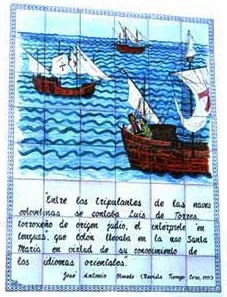 "Entre los tripulantes de las naves
colombinas se contaba Luis de Torres,
torroxeño de origen judío, el intérprete "en
lenguas", que Colón llevaba en la nao Santa
María en virtud de su conocimiento de
los idiomas orientales.
José Antonio (Revista Tiempo